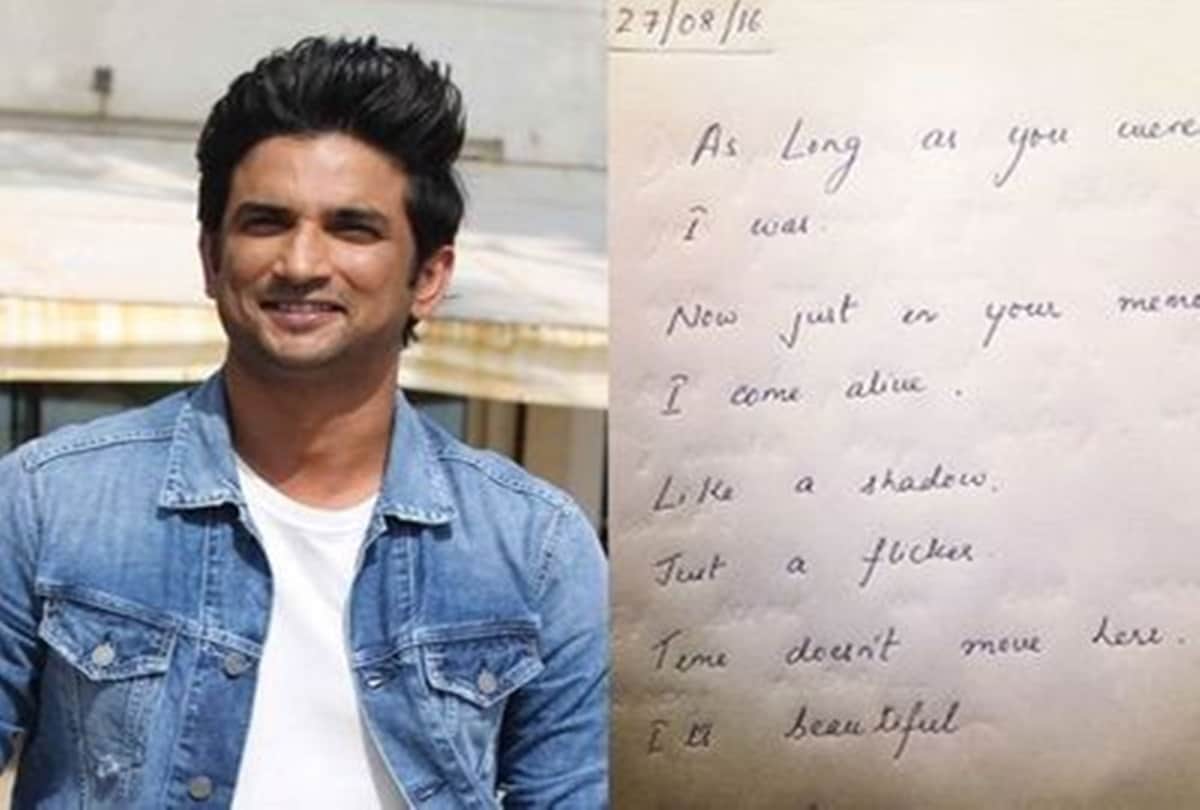 27/08/16
As Long as you were
I was.
Now just in your memo
I come alive.
Like a shadow,
Just a flicker
Time doesn't move here.
beautiful